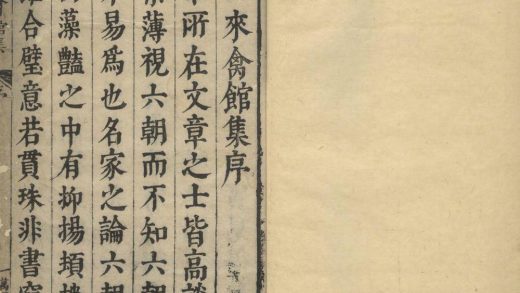 來禽館集序
所在文章之士皆高談
薄視六朝而不知六朝
易爲也名家之論六朝
藻豔之中有抑揚頓挫
合璧意若貫珠非書窮